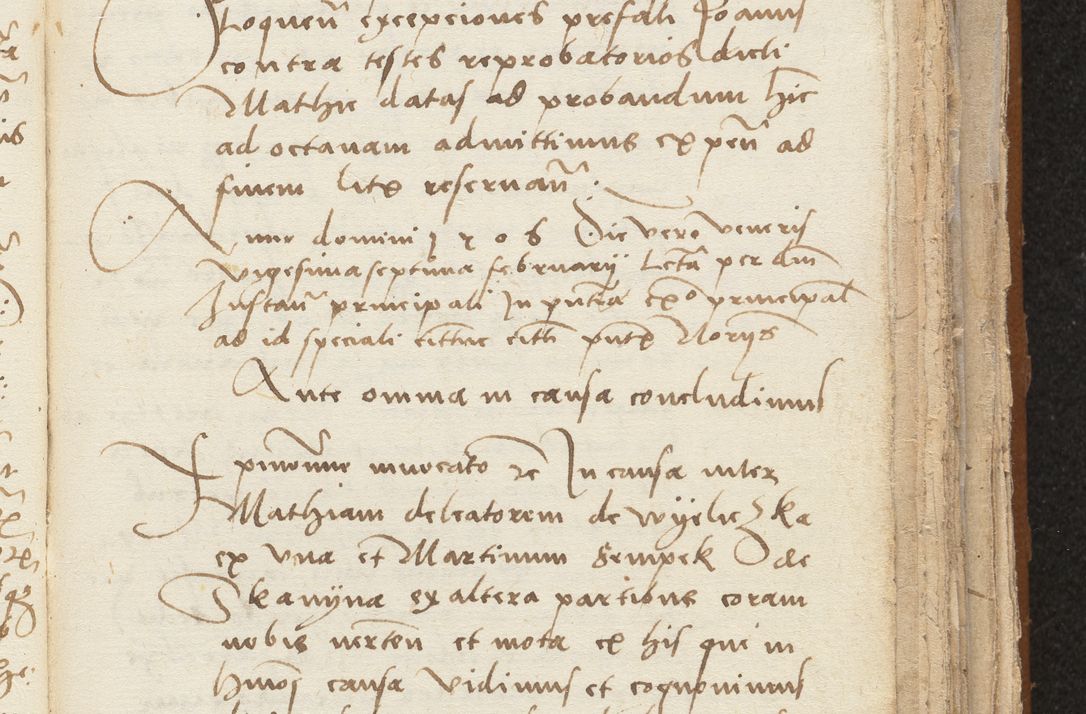 Eloquen̄ excepciones prefati Joannis
contra testes reprobatorios dicti
Mathie datas ad probandum hīc
ad octavam admittimus expen̄ ad
finem litis reservan̄
Anno domini 1 5 0 8 Die vero veneris
vigesima septima februarij Lcta per dm̄
Instan̄ principali In pn̄tia exº principal
ad id speciali cittne citti pn̄tib Norijs
Ante omnia in causa concludimus
Xpi nomine invocato re In causa inter
Mathiam deleatorem de Wyeliczka
ex Una et Martinum Sempek de
Skanyna ex altera partibus coram
nobis verten̄ et mota ex his que in
hmōi causa vidimus et cognovimus